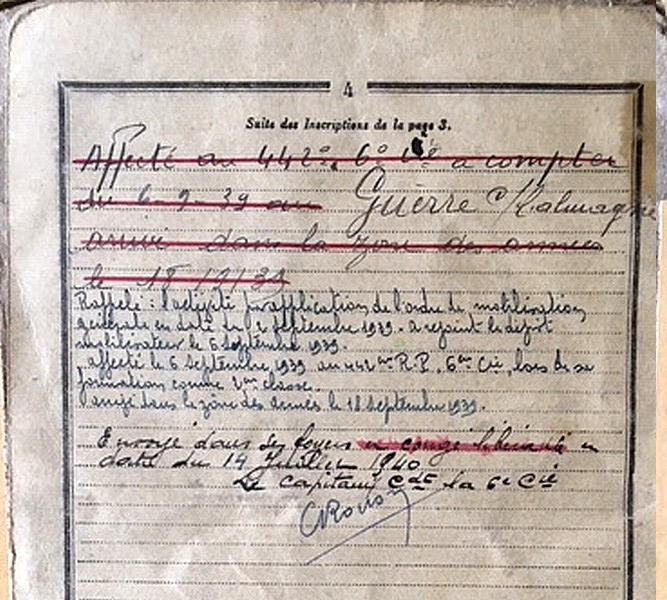 4
Suite des Inscriptions de la page 3.
Affecté au 442e, 6e Cie a compter
du 6-9-39 au Guerre c/Allemagne
arrivé dans la zone des armées
le 18/9/39
Rappelé à l'activité par application de l'ordre de mobilisation
générale en date du 2 septembre 1939. a rejoint le dépôt
mobilisateur le 6 septembre 1939.
affecté le 6 septembre 1939 au 442ème R.P., 6ème Cie, lors de sa
formation comme 2ème classe.
arrivé dans la zone des armées le 18 septembre 1939.
Envoyé dans ses foyers en congé libérable en
date du 14 Juillet 1940
Le Capitaine Cdt la 6e Cie